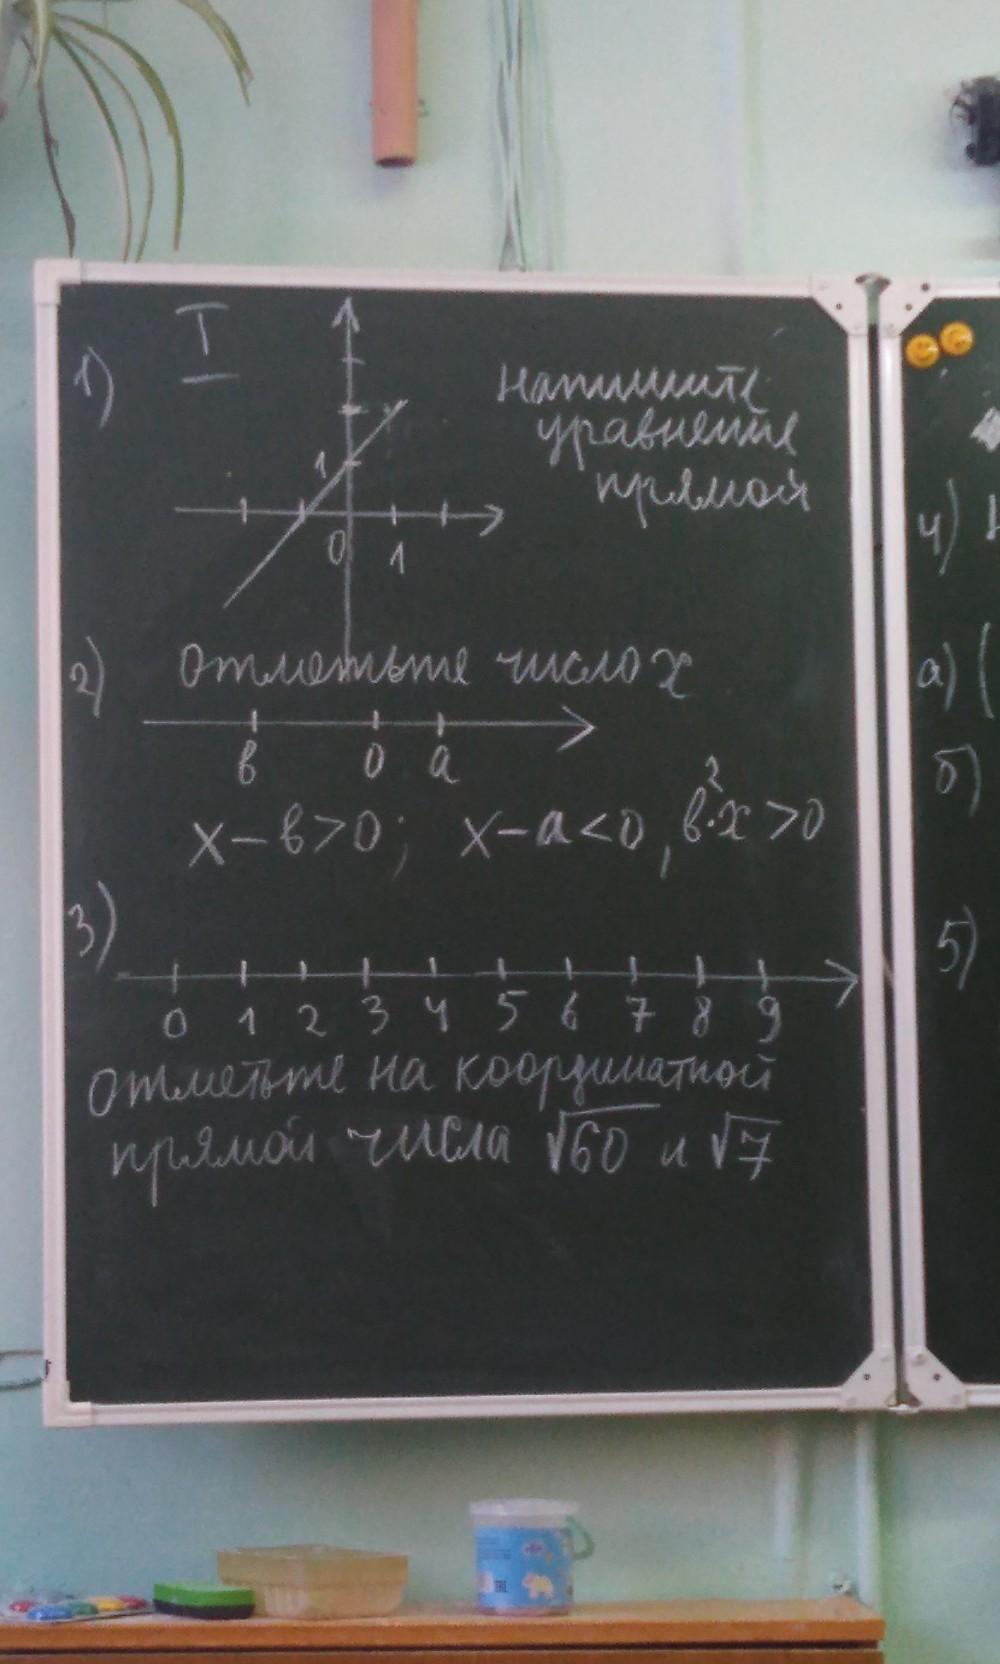 I
1)
1
0
1
напишите
уравнение
прямой
2) отметьте число x
в 0 a
x – в > 0; x – a < 0, в²·x > 0
3)
0 1 2 3 4 5 6 7 8 9
отметьте на координатной
прямой числа √60 и √7
4)
а) (
б)
5)